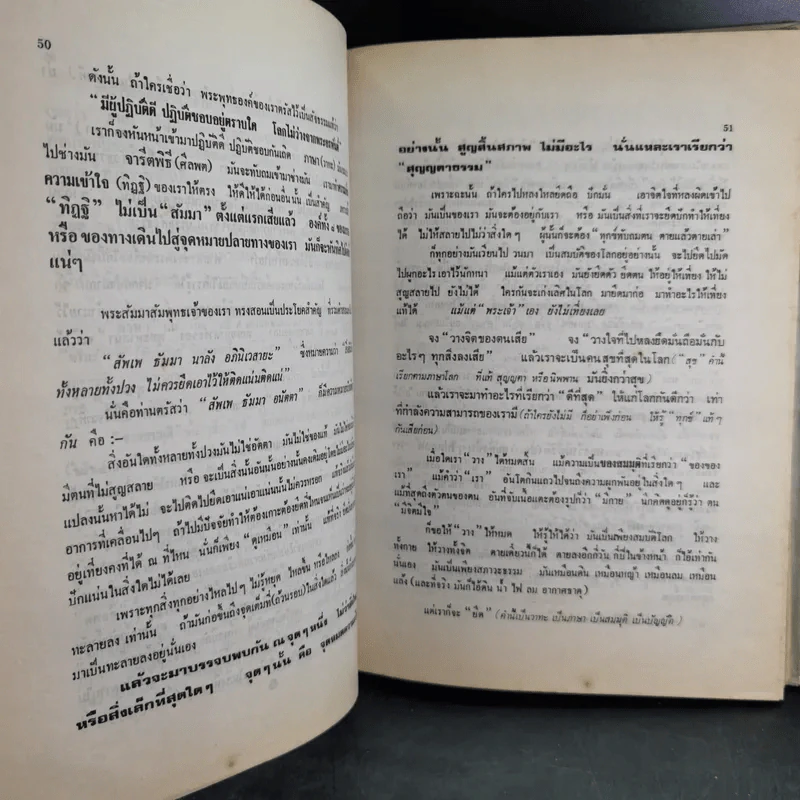 50
ดังนั้น ถ้าใครเชื่อว่า พระพุทธองค์ของเราตรัสไว้เป็นสัจธรรมแล้วว่า
"มีผู้ปฏิบัติดี ปฏิบัติชอบอยู่ตราบใด โลกไม่ว่างจากพระอรหันต์"
เราก็จงหันหน้าเข้ามาปฏิบัติดี ปฏิบัติชอบกันเถิด ภาษา (วาทะ)
ไปช่างมัน จารีตพิธี (ศีลพต) มันจะทับถมเข้ามาช่างมัน
ความเข้าใจ (ทิฏฐิ) ของเราให้ตรง ให้ดีให้ได้ก่อนอื่นนั้น เป็นสำคัญ
"ทิฏฐิ" ไม่เป็น "สัมมา" ตั้งแต่แรกเสียแล้ว องค์ทั้ง ๘ ของ
หรือ ของทางเดินไปสู่จุดหมายปลายทางของเรา มันก็จะ
แน่ๆ
พระสัมมาสัมพุทธเจ้าของเรา ทรงสอนเป็นประโยคสำคัญ ที่
แล้วว่า
"สัพเพ ธัมมา นาลัง อภินิเวสายะ" ซึ่งหมายความว่า
ทั้งหลายทั้งปวง ไม่ควรยึดเอาไว้ให้ติดแน่นติดแน่"
นั่นคือท่านตรัสว่า "สัพเพ ธัมมา อนัตตา" ก็มีความหมาย
กัน คือ :–
สิ่งอันใดทั้งหลายทั้งปวงมันไม่ใช่อัตตา มันไม่ใช่ของแท้
มีตนที่ไม่สูญสลาย หรือ จะเป็นสิ่งนั้นอันนั้นอย่างนั้นคงเดิมอยู่โดยไม่
แปลงนั้นหาได้ไม่ จะไปติดไปยึดเอาแน่เอาแน่นนั้นไม่ควรหรอก
อาการที่เคลื่อนไปๆ ถ้าไปมีปัจจัยทำให้ต้องเกาะต้องยึดที่ไหน
อยู่เที่ยงคงที่ได้ ณ ที่ไหน นั่นก็เพียง "ดูเหมือน" เท่านั้น
ปึกแน่นในสิ่งใดไม่ได้เลย
เพราะทุกสิ่งทุกอย่างไหลไปๆ ไม่รู้หยุด ไหลขึ้น หรือไหลลง
ทะลายลง เท่านั้น ถ้ามันก่อขึ้นถึงจุดเต็มที่ (ถ้วนรอบ) ในสิ่งใดแล้ว
มาเป็นทะลายลงอยู่นั่นเอง
แล้วจะมาบรรจบพบกัน ณ จุดๆ หนึ่ง
หรือสิ่งเล็กที่สุดใดๆ จุดๆ นั้น คือ
51
อย่างนั้น สูญสิ้นสภาพ ไม่มีอะไร นั่นแหละเราเรียกว่า
"สุญญตาธรรม"
เพราะฉะนั้น ถ้าใครไปหลงใหลยึดถือ ปึกมั่น เอาจิตใจที่หลงผิดเข้าไป
ถือว่า มันเป็นของเรา มันจะต้องอยู่กับเรา หรือ มันเป็นสิ่งที่เราจะยึดปึกทำให้เที่ยง
ได้ ไม่ให้สลายไปไม่ว่าสิ่งใดๆ ผู้นั้นก็จะต้อง "ทุกข์ทับถมตน ตายแล้วตายเล่า"
ก็ทุกอย่างมันเวียนไป วนมา เป็นสมบัติของโลกอยู่อย่างนั้น จะไปยึดไปมัด
ไปผูกอะไร เอาไว้นักหนา แม้แต่ตัวเราเอง มันยังยึดตัว ยึดตน ให้อยู่ ให้เที่ยง ให้ไม่
สูญสลายไป ยังไม่ได้ ใครกันจะเก่งเลิศในโลก มายึดมาก่อ มาทำอะไรให้เที่ยง
แท้ได้ แม้แต่ "พระเจ้า" เอง ยังไม่เที่ยงเลย
จง "วางจิตของตนเสีย" จง "วางใจที่ไปหลงยึดมันถือมันกับ
อะไรๆ ทุกสิ่งลงเสีย" แล้วเราจะเป็นคนสุขที่สุดในโลก ("สุข" คำนี้
เรียกตามภาษาโลก ที่แท้ สุญญตา หรือ นิพพาน มันยิ่งกว่าสุข)
แล้วเราจะมาทำอะไรที่เรียกว่า "ดีที่สุด" ให้แก่โลกกันดีกว่า เท่า
ที่กำลังความสามารถของเรามี (ถ้าใครยังไม่มี ก็อย่าเพิ่งก่อน ให้รู้ "ทุกข์" แท้ๆ
กันเสียก่อน)
เมื่อใดเรา "วาง" ได้หมดสิ้น แม้ความเป็นของสมมุติที่เรียกว่า "ของของ
เรา" แม้คำว่า "เรา" อันใดกินแถวไปจนถึงความผูกพันอยู่ในสิ่งใดๆ และ
แม้ที่สุดถึงตัวตนของตน อันที่จับเนื้อแตะต้องรูปก็ว่า "มีกาย" นึกคิดดูอยู่ก็รู้ว่า ตน
"มีจิตมีใจ"
ก็ขอให้ "วาง" ให้หมด ให้รู้ให้ได้ว่า มันเป็นเพียงสมบัติโลก ให้วาง
ทั้งกาย ให้วางทั้งจิต ตายเดี๋ยวนี้ก็ได้ ตายลงอีกกี่วัน กี่ปีในข้างหน้า ก็ใช้เท่ากัน
นั่นเอง มันเป็นเพียงสภาวะธรรม มันเหมือนดิน เหมือนหญ้า เหมือนลม เหมือน
แล้ง (และที่จริง มันก็ใช้ดิน น้ำ ไฟ ลม อากาศธาตุ)
แต่เราก็จะ "ยึด" (คำนี้เป็นวาทะ เป็นภาษา เป็นสมมุติ เป็นบัญญัติ)